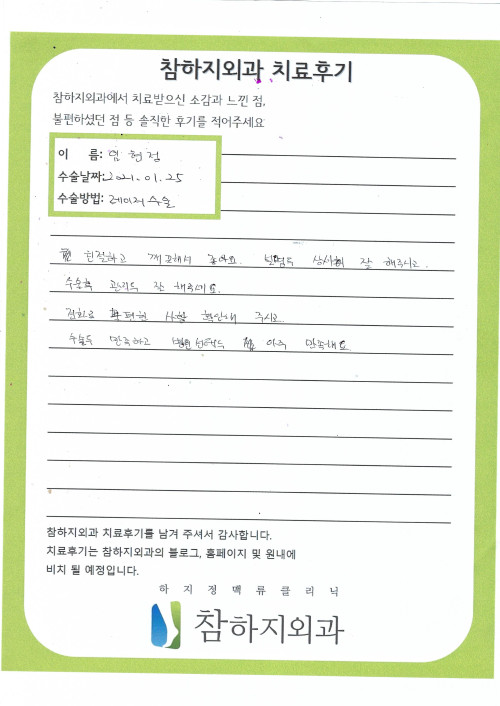 참하지외과 치료후기
참하지외과에서 치료받으신 소감과 느낀 점,
불편하셨던 점 등 솔직한 후기를 적어주세요
이 름: 현정
수술날짜: 2021.01.25
수술방법: 레이저수술
친절하고 깨끗해서 좋아요. 설명도 상세히 잘 해주시고.
수술후 관리도 잘 해주세요.
전화로 불편한 사항 확인해 주시고
수술도 만족하고 병원선택도 아주 만족해요
참하지외과 치료후기를 남겨 주셔서 감사합니다.
치료후기는 참하지외과의 블로그, 홈페이지 및 원내에
비치 될 예정입니다.
하지정맥류클리닉
참하지외과